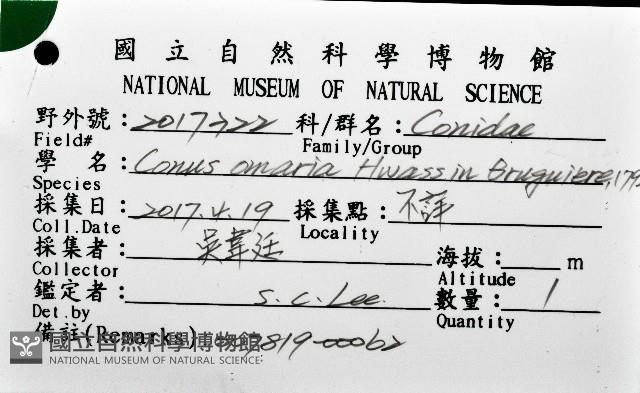 國立自然科學博物館
NATIONAL MUSEUM OF NATURAL SCIENCE
野外號：2017722 科/群名：Conidae
Field# Family/Group
學 名：Conus omaria Hwass in Bruguiere, 179
Species
採集日：2017.4.19 採集點：不詳
Coll.Date Locality
採集者：吳韋廷 海拔： m
Collector Altitude
鑑定者：S. C. Lee 數量：1
Det.by Quantity
備註(Remarks) 819-00062
國立自然科學博物館
NATIONAL MUSEUM OF NATURAL SCIENCE